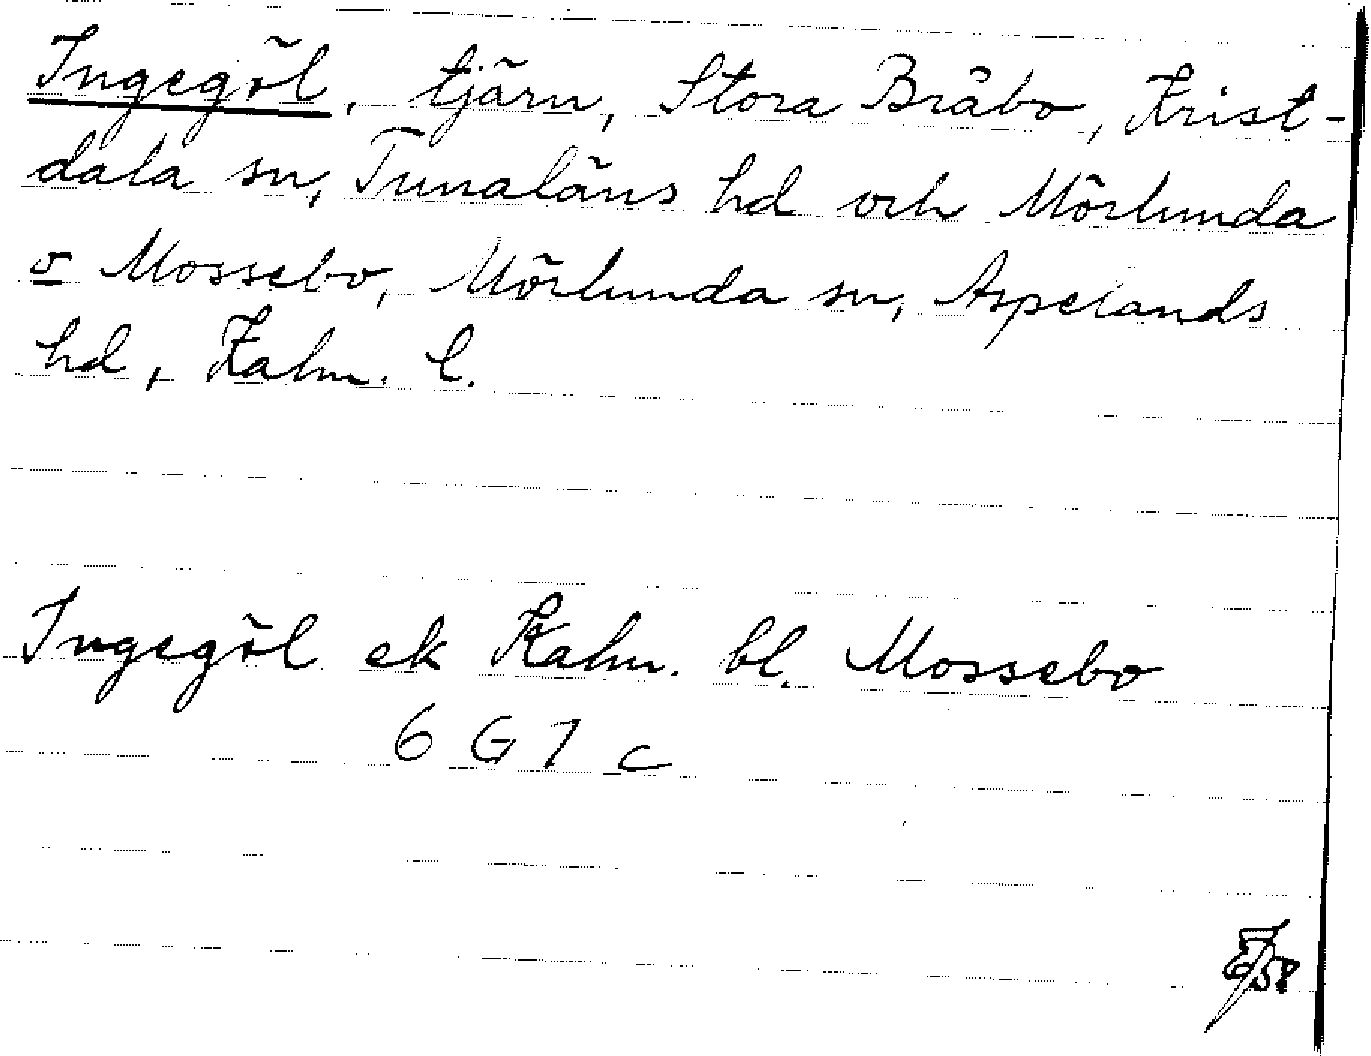 Ingegöl, tjärn, Stora Bråbo, Krist-
dala sn, Tunaläns hd och Mörlunda
o Mossebo, Mörlunda sn, Aspelands
hd, Kalm. l.
Ingegöl ek Kalm. bl. Mossebo
6 G 7 c